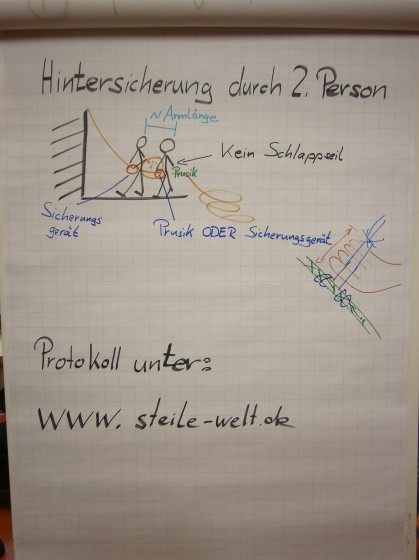 Hintersicherung durch 2. Person
~ Armlänge
Kein Schlappseil
Prusik
Sicherungs
gerät
Prusik ODER Sicherungsgerät
Protokoll unter:
www.steile-welt.de